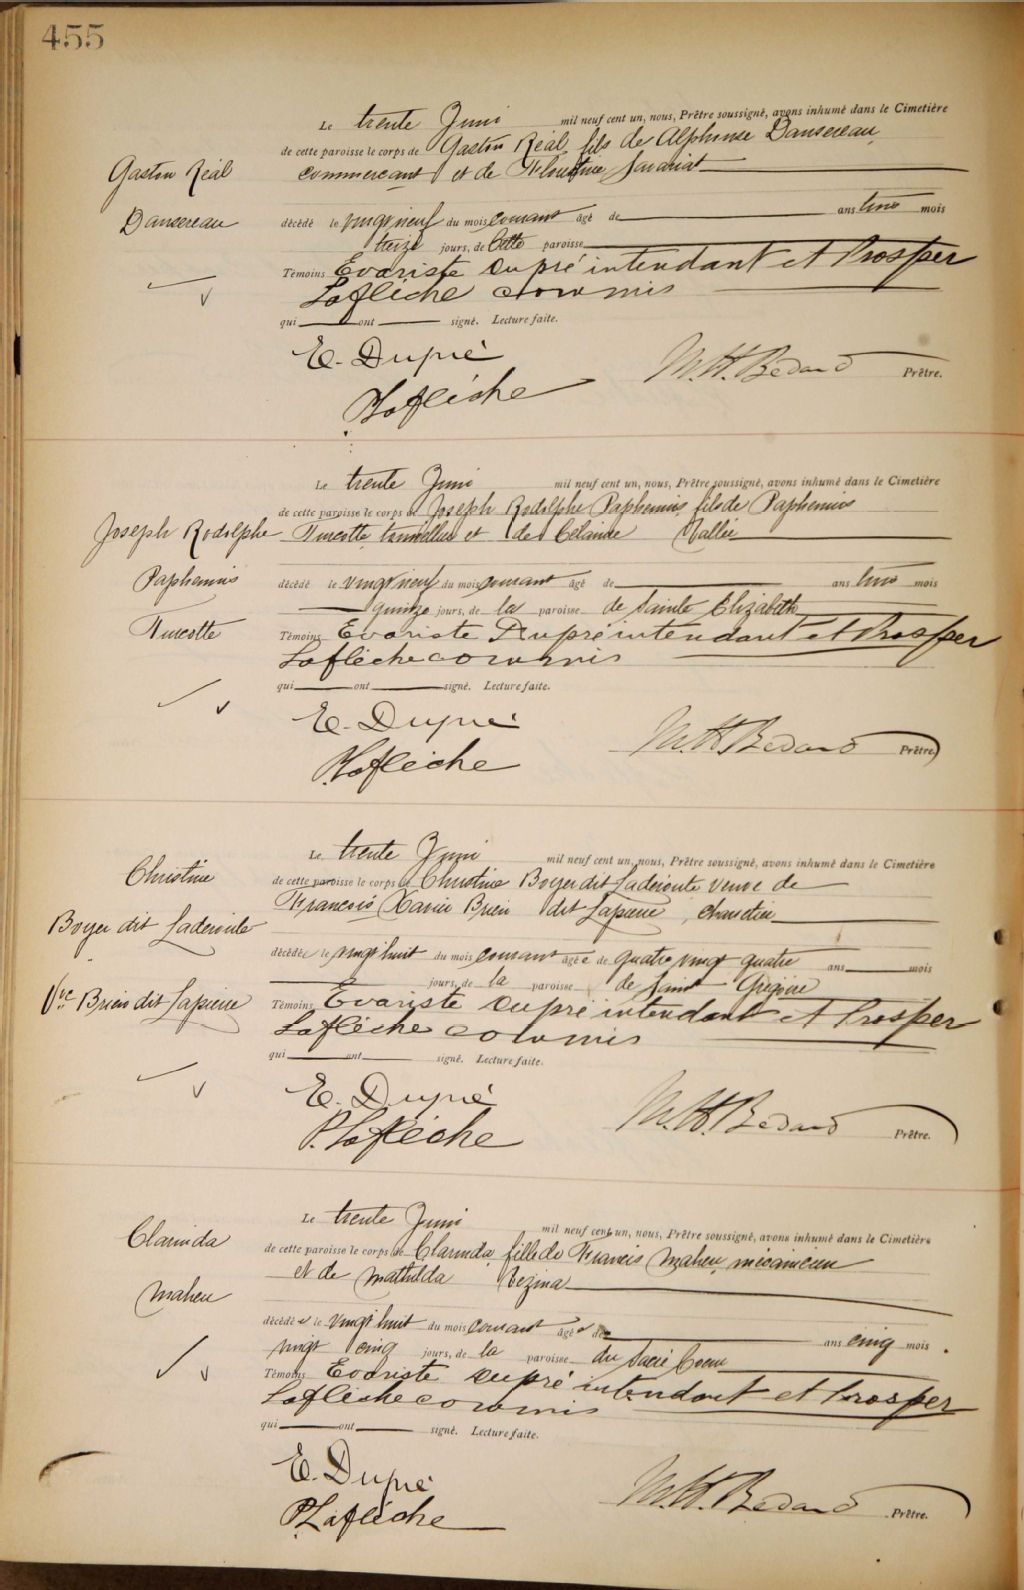 455
Le trente Juin mil neuf cent un, nous, Prêtre soussigné, avons inhumé dans le Cimetière
de cette paroisse le corps de Gaston Réal, fils de Alphonse Dansereau,
Gaston Réal
commerçant et de Florentine
Dansereau
décédé le vingt neuf du mois courant âgé de ans mois
treize jours, de Cette paroisse
Témoins Evariste Dupré intendant et Prosper
Laflèche commis
qui ont signé. Lecture faite.
E. Dupré
M.H. Bédard Prêtre.
P Laflèche
Le trente Juin mil neuf cent un, nous, Prêtre soussigné, avons inhumé dans le Cimetière
de cette paroisse le corps de Joseph Rodolphe Paphennis fils de Paphennis
Joseph Rodolphe
Turcotte et de Vallée
Paphennis
décédé le vingt neuf du mois courant âgé de ans mois
quinze jours, de la paroisse de Sainte Elizabeth
Turcotte
Témoins Evariste Dupré intendant et Prosper
Laflèche commis
qui ont signé. Lecture faite.
E. Dupré
M.H. Bédard Prêtre
P. Laflèche
Le trente Juin mil neuf cent un, nous, Prêtre soussigné, avons inhumé dans le Cimetière
Christine
de cette paroisse le corps de Christine Boyer dit Laderoute veuve de
Francois Xavier Brien dit Lapierre, charretier
Boyer dit Laderoute
décédée le vingt huit du mois courant âgée de quatre vingt quatre ans mois
jours, de la paroisse de Saint Grégoire
Vve Brien dit Lapierre
Témoins Evariste Dupré intendant et Prosper
Laflèche commis
qui ont signé. Lecture faite.
E. Dupré
M.H. Bédard Prêtre.
P. Laflèche
Le trente Juin mil neuf cent un, nous, Prêtre soussigné, avons inhumé dans le Cimetière
Clarinda
de cette paroisse le corps de Clarinda, fille de Francis Maheu, mécanicien
et de Mathilda Vezina
Maheu
décédée le vingt huit du mois courant âgée de ans cinq mois
vingt cinq jours, de la paroisse du Sacré Coeur
Témoins Evariste Dupré intendant et Prosper
Laflèche commis
qui ont signé. Lecture faite.
E. Dupré
M.H. Bédard Prêtre.
P. Laflèche